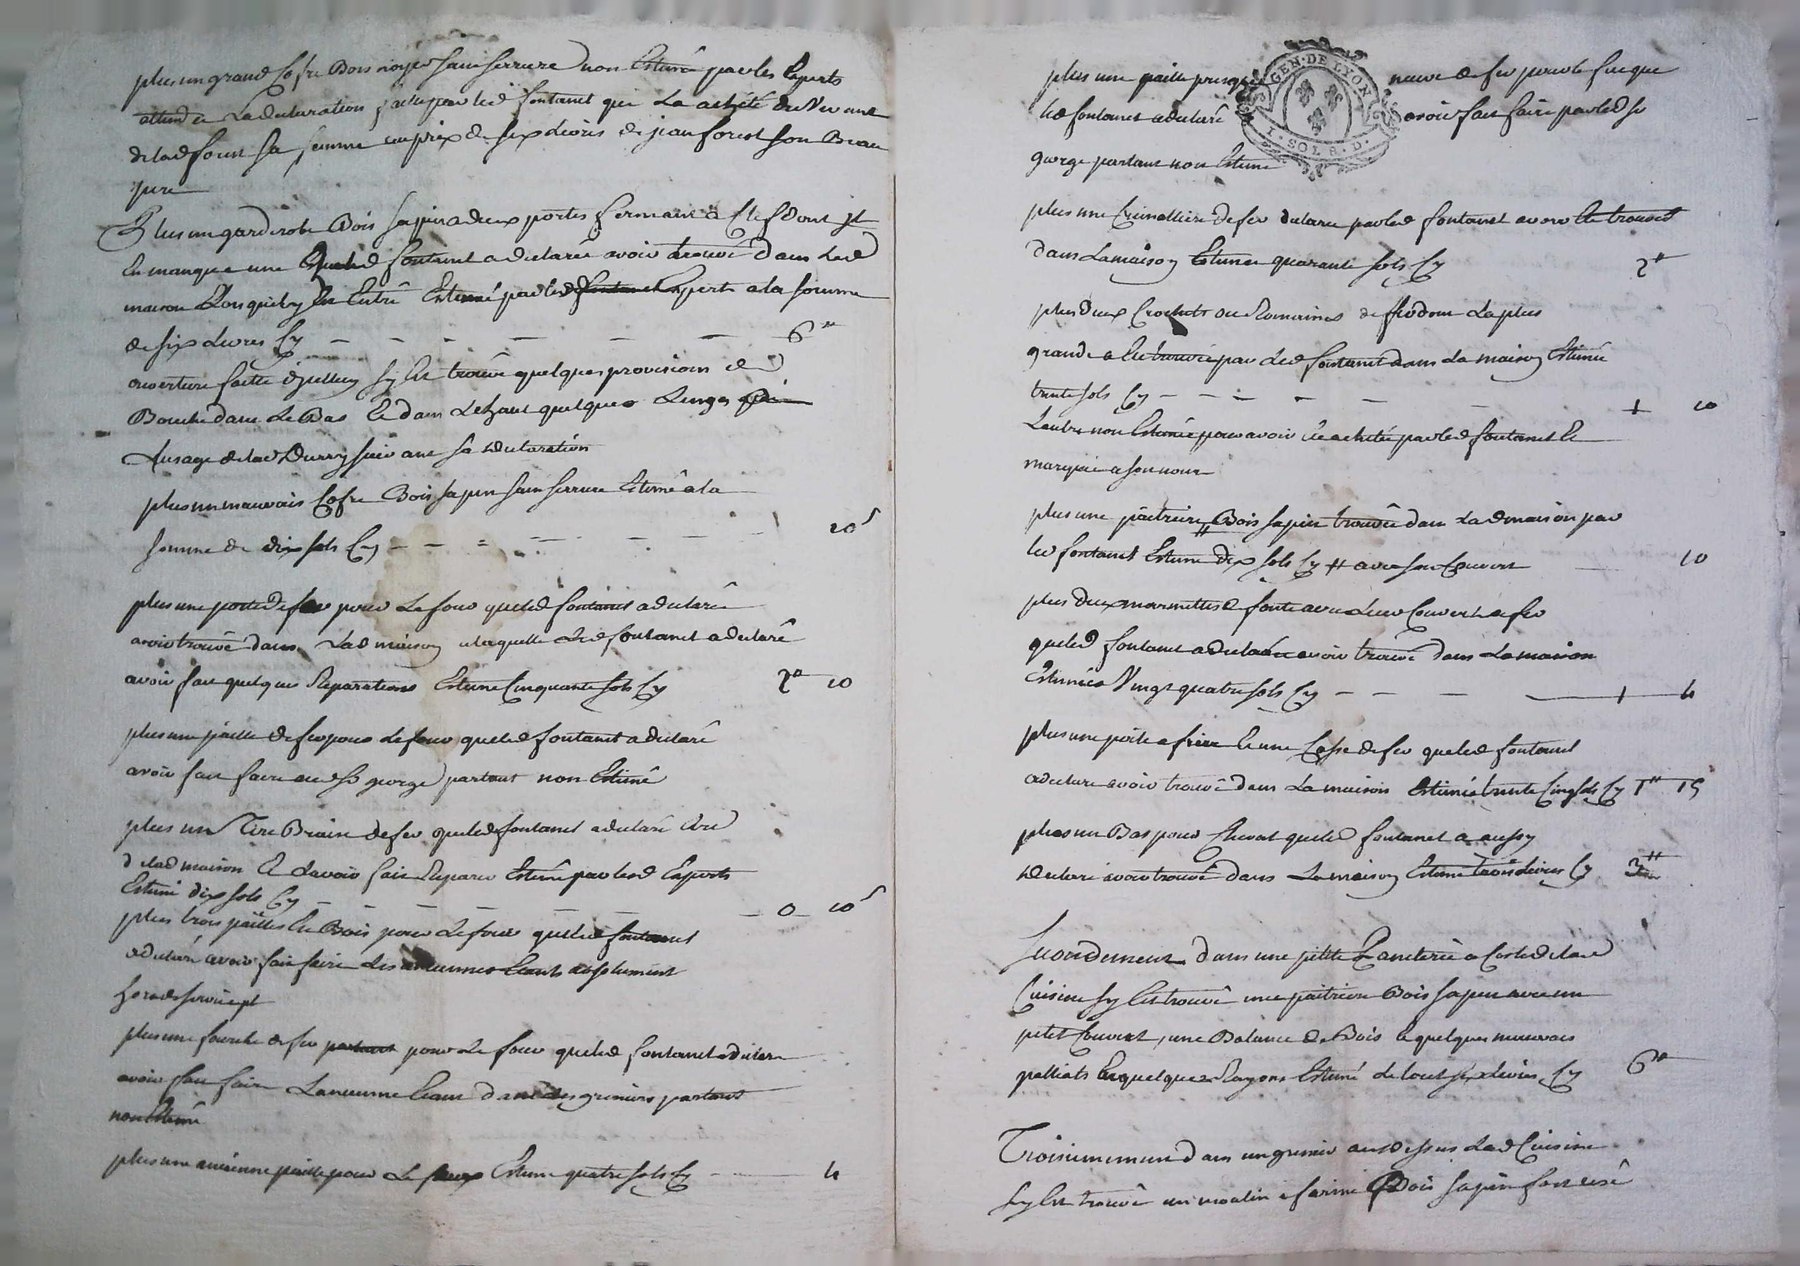 plus un grand cofre Bois noyer sans serrure non Estimé par les Experts
attendu La declaration faitte par led fontanet qui La acheté
de lad forest sa femme au prix de six Livres de jean forest son Beau
pere
Plus un garderobe Bois sapin a deux portes fermant a Clef dont jl
En manque une queled fontanet a declaré avoir trouvé dans Lad
maison Lorsquil y Est Entré Estimé par led Experts a la somme
de six Livres Cy 6#
ouverture faitte dyelluy sy Est trouvé quelques provisions de
Bouche dans Le Bas Et dans Le haut quelques Linges
a Lusage de lad suivant sa declaration
plus un mauvais Cofre Bois sapin sans serrure Estimé a la
somme de dix sols Cy 10s
plus une porte de fer pour Le four queled fontanet a declaré
avoir trouvé dans Lad maison a laquelle Led fontanet a declaré
avoir fait quelques Reparations Estimé Cinquante sols Cy 2# 10
plus une paelle de fer pour Le four queled fontanet a declaré
avoir fait faire aud St george partant non Estimé
plus un Tire Braise de fer queled fontanet a declaré Etre
de lad maison Et Lavoir fait Reparer Estimé par lesd Experts
Estimé dix sols Cy 0 10s
plus trois paelles En Bois pour Le four queled fontanet
a declaré avoir fait faire Les anciennes Etant absolument
hors de service
plus une fourche de fer partant pour Le four queled fontanet a declaré
avoir fait faire Lancienne Etant dans les greniers partant
non Estimé
plus une ancienne paelle pour Le Estimé quatre sols Cy 4
plus une paille presque neuve de fer pour le feu que
led fontanet a declaré avoir fait faire par led St
george partant non Estimé
plus une Cremalliere de fer declaré par led fontanet avoir Eté trouvé
dans La maison Estimée quarante sols Cy 2#
plus deux Crochets ou Romaines de fer dont La plus
grande a Eté trouvée par Led fontanet dans La maison Estimée
trente sols Cy 1 10
Lautre non Estimée pour avoir Eté achetée par led fontanet Et
marquée a son nom
plus une paitriere Bois sapin trouvée dans Lad maison par
led fontanet Estimé dix sols Cy # avec son Couvert 10
plus deux marmittes de fonte avec Leur Couvert de fer
queled fontanet a declaré avoir trouvé dans La maison
Estimées Vingt quatre sols Cy 1 4
plus une poële a frire Et une Casse de fer queled fontanet
a declaré avoir trouvé dans La maison Estimée trente Cinq sols Cy 1# 15
plus un Bas pour Cheval queled fontanet a aussy
declaré avoir trouvé dans La maison Estimé trois Livres Cy 3#
Secondement dans une petite Paneterie a Costé de lad
Cuisine sy Est trouvé une paitriere Bois sapin avec un
petit Couvert, une Balance de Bois Et quelques mauvais
palliats Et quelques Rayons Estimé de tout six Livres Cy 6#
Troisiemement dans un grenier au dessus Lad Cuisine
sy Est trouvé un moulin a farine Bois sapin fort usé
GEN·DE LYON
1·SOL 8·D·